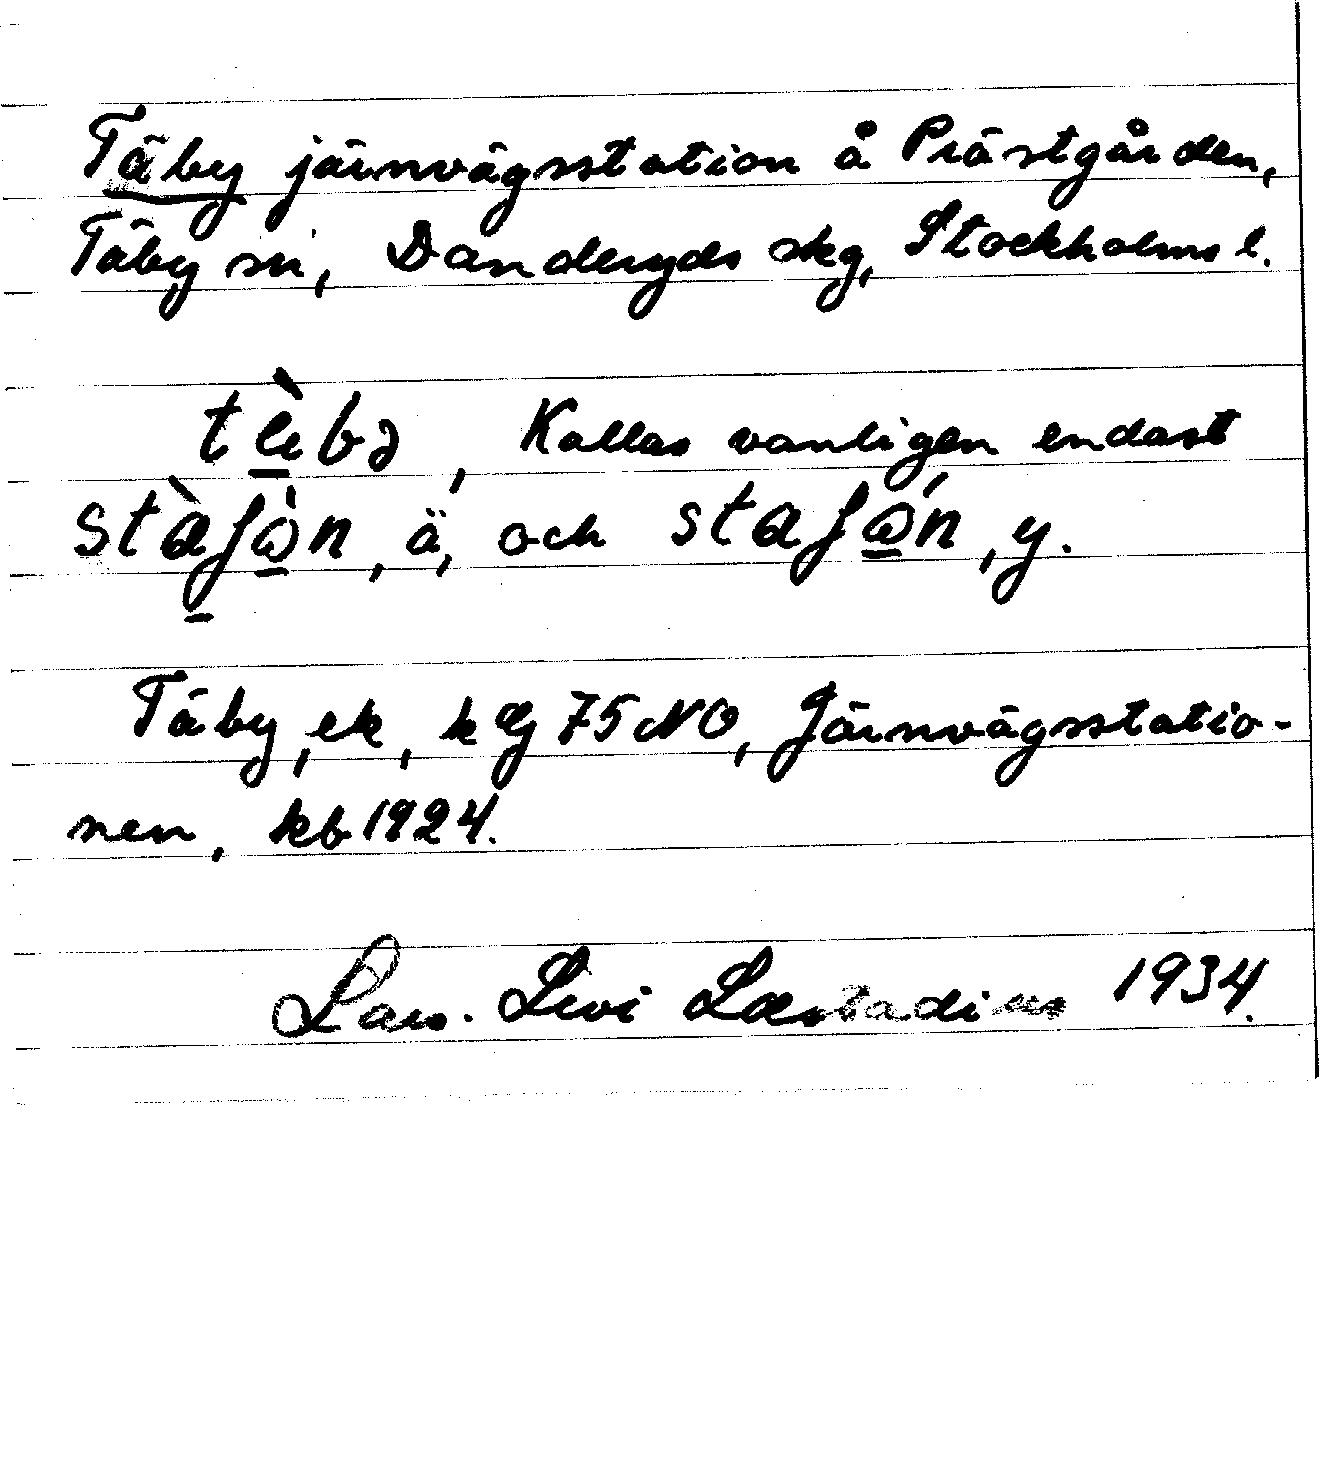 Täby järnvägsstation å Prästgården,
Täby sn, Danderyds skg, Stockholms l.
Kallas vanligen endast
ä, och , y.
Täby, ek, k Æ 75 NO, Järnvägsstatio-
nen, kb 1924.
Lars. Levi Læstadius 1934.